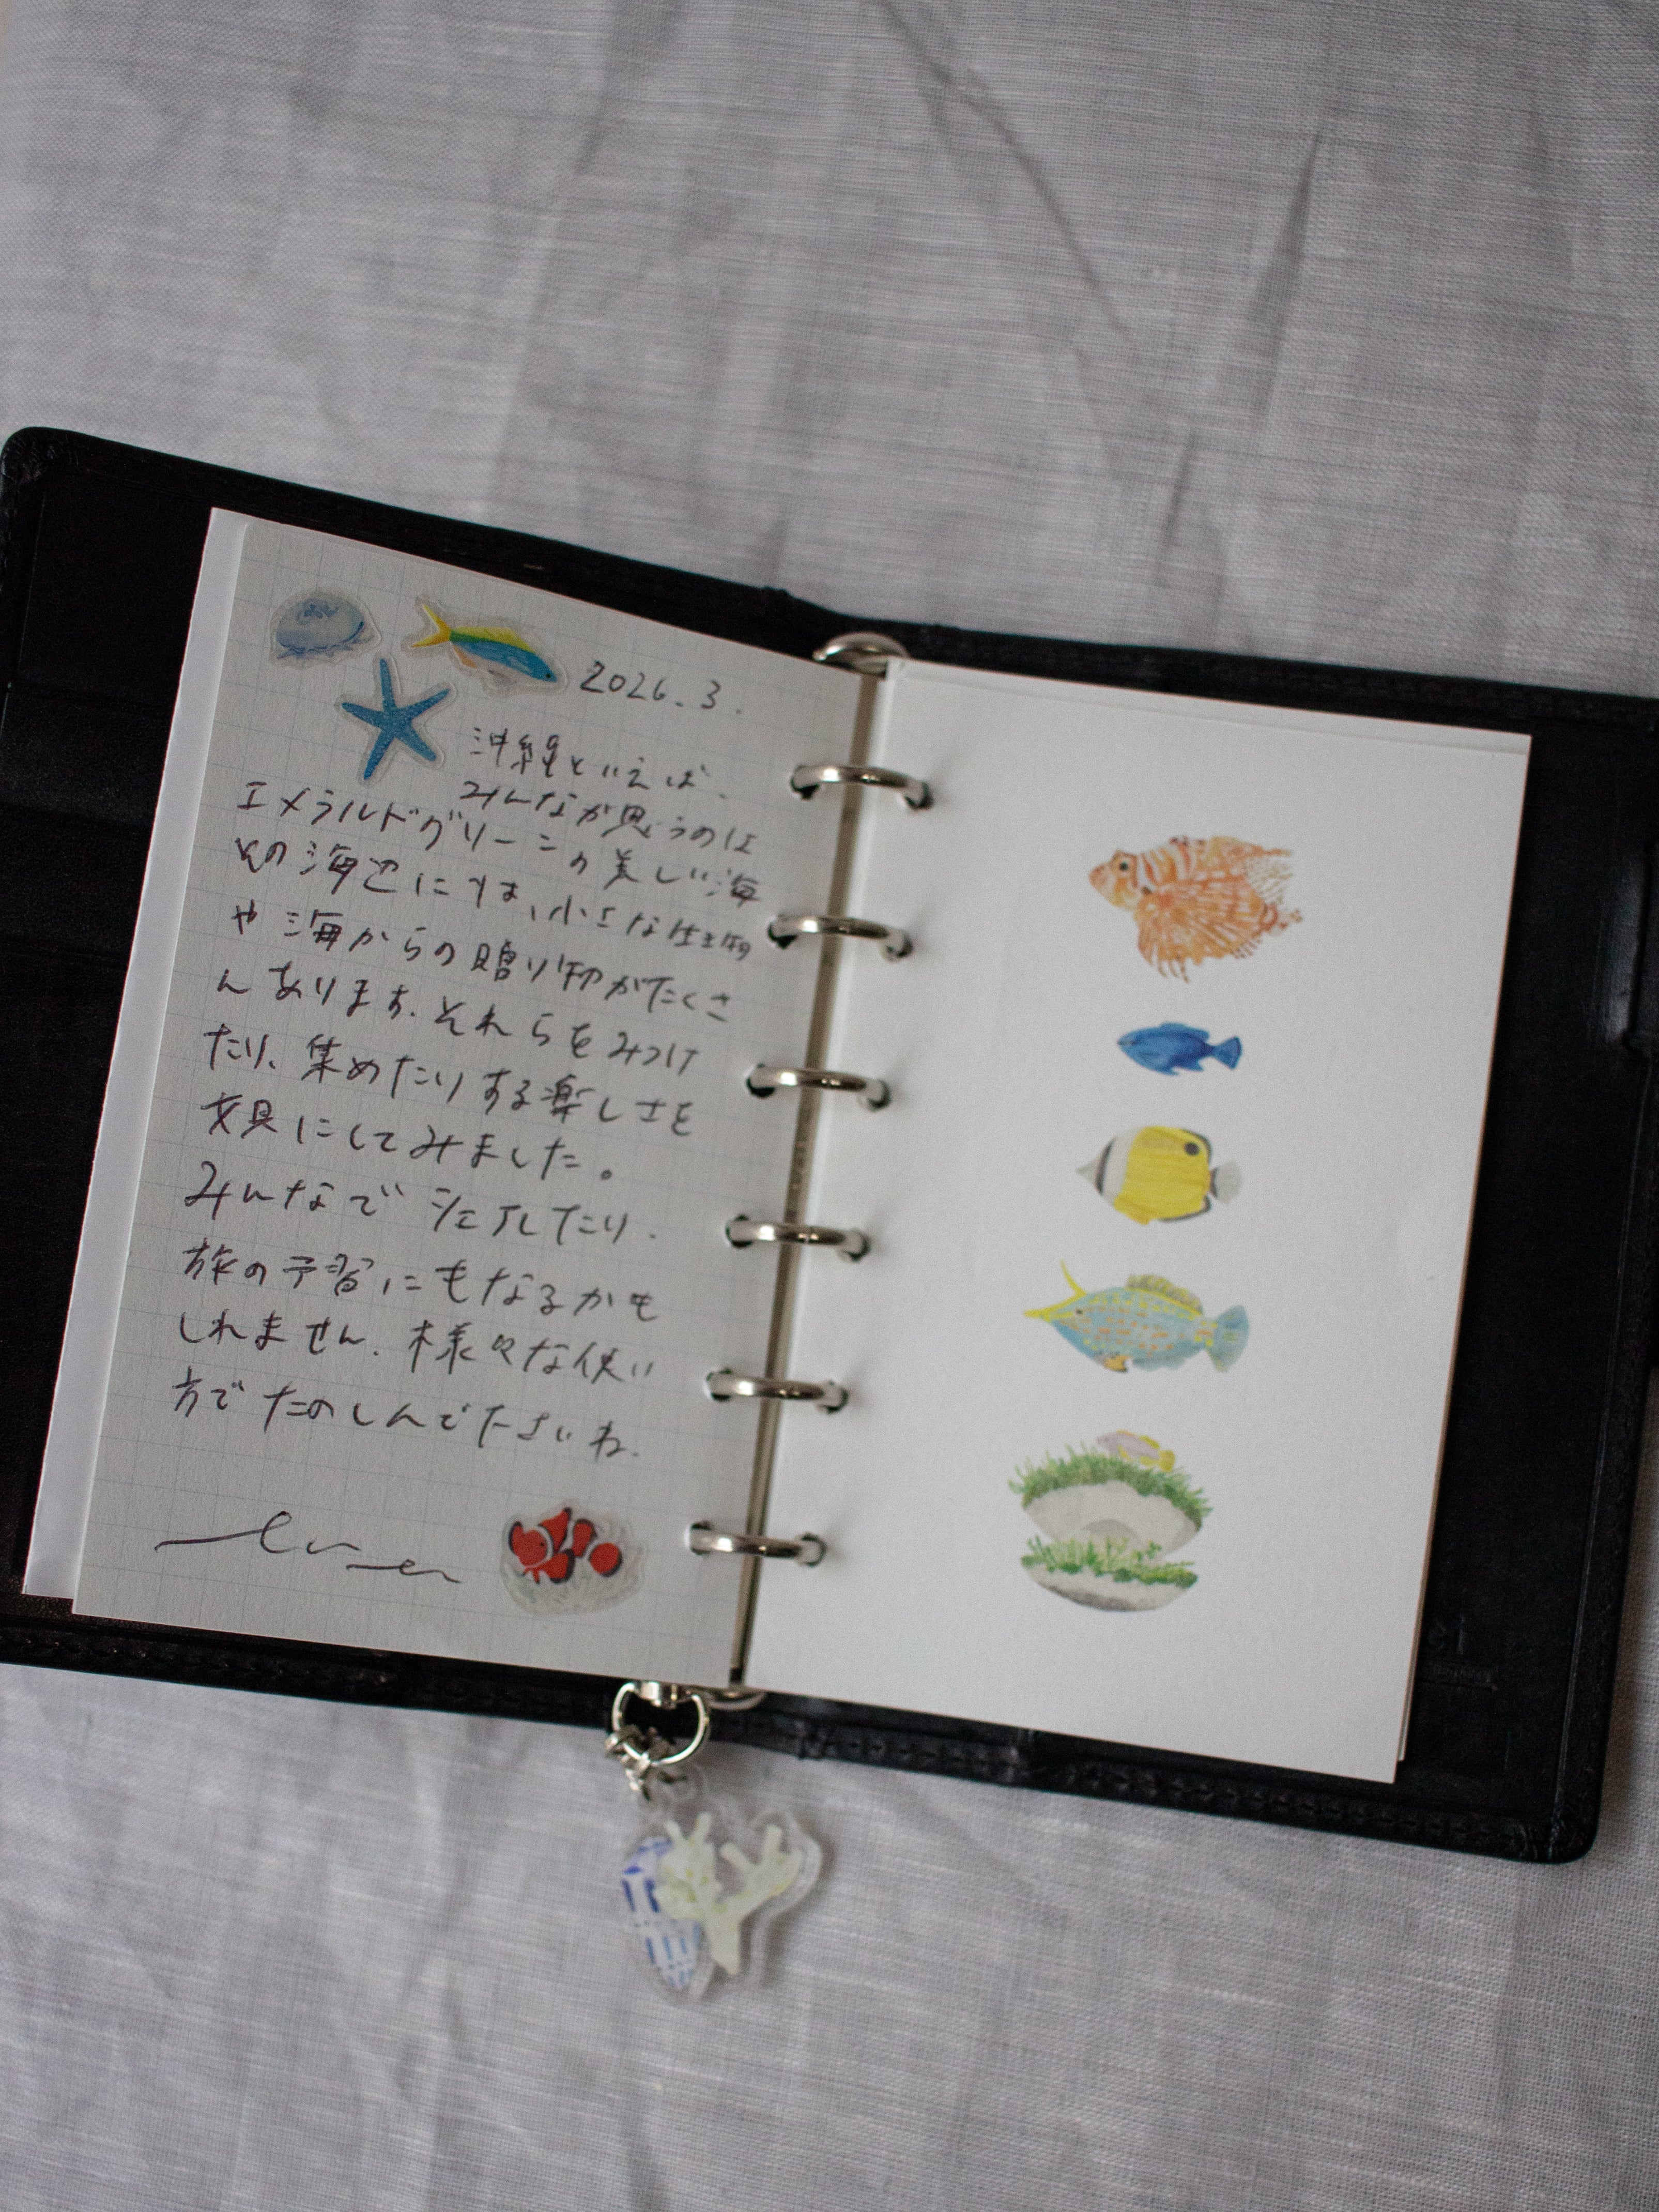 2026.3.
沖縄といえば、
みんなが思うのは
エメラルドグリーンの美しい海
その海辺には、小さな生き物
や海からの贈り物がたくさ
んあります。それらをみつけ
たり、集めたりする楽しさを
文具にしてみました。
みんなでシェアしたり、
旅の予習にもなるかも
しれません。様々な使い
方でたのしんでくださいね。